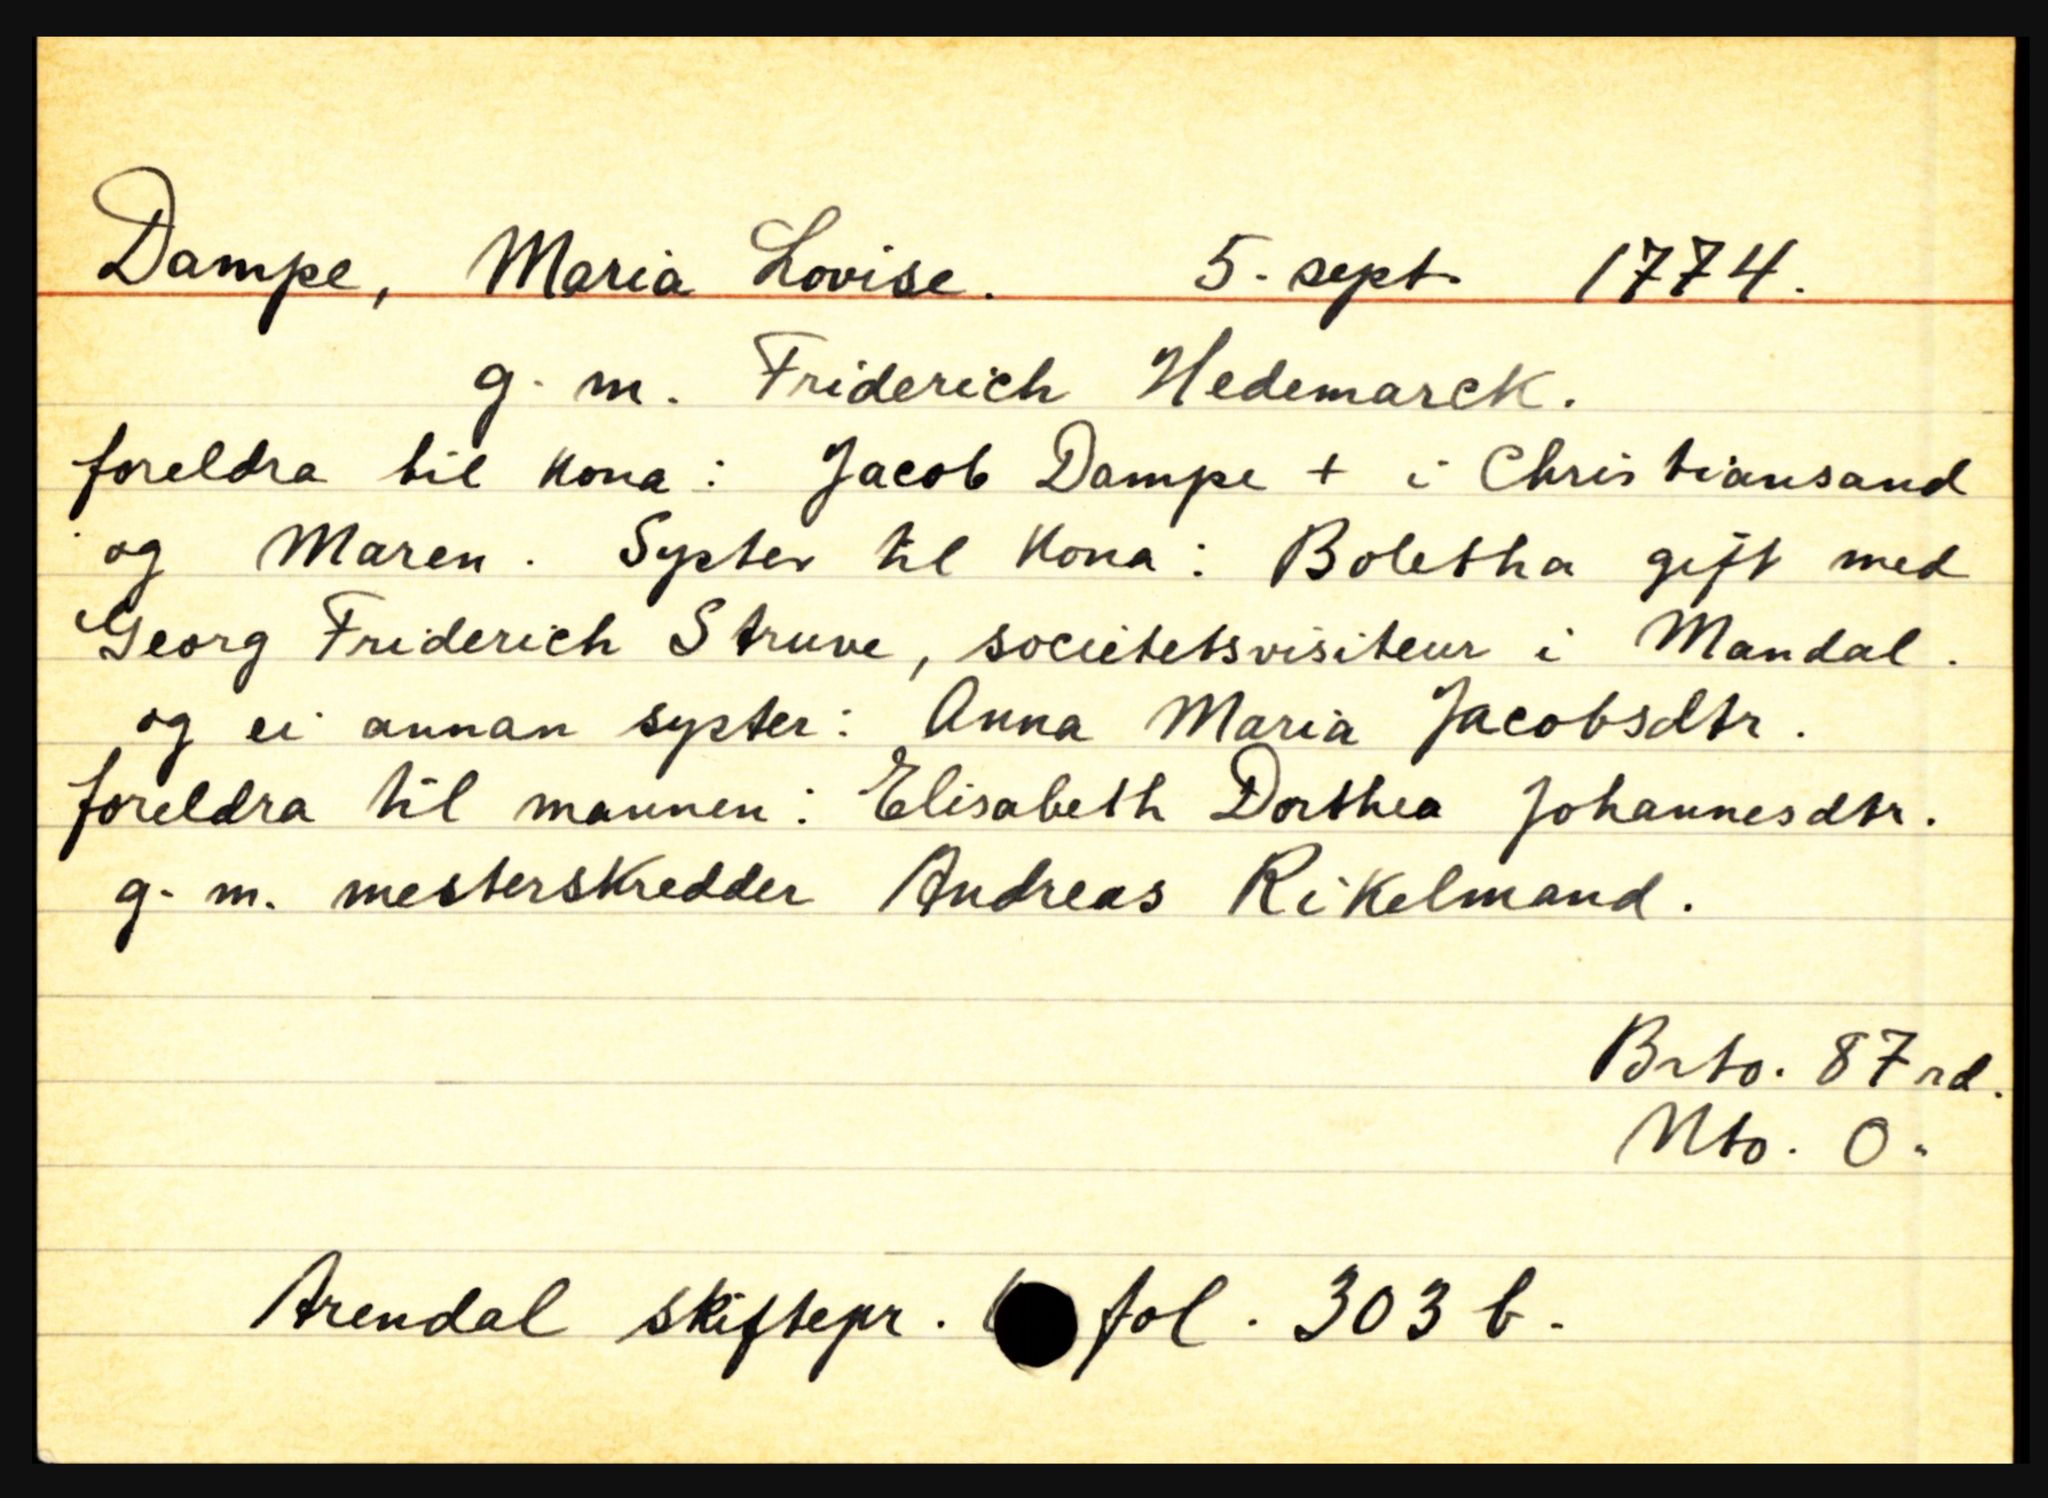 Dampe, Maria Lovise. 5. sept. 1774.
g. m. Friderich Hedemarck.
foreldra til kona: Jacob Dampe + i Christiansand
og Maren. Syster til kona: Boletha gift med
Georg Friderich Struve, societetsvisiteur i Mandal.
og ei annan syster: Anna Maria Jacobsdtr.
foreldra til mannen: Elisabeth Dorthea Johannesdtr.
g. m. mesterskredder Andreas Rikelmand.
Brto. 87 rd.
Nto. 0.
Arendal skiftepr. fol. 303 b.